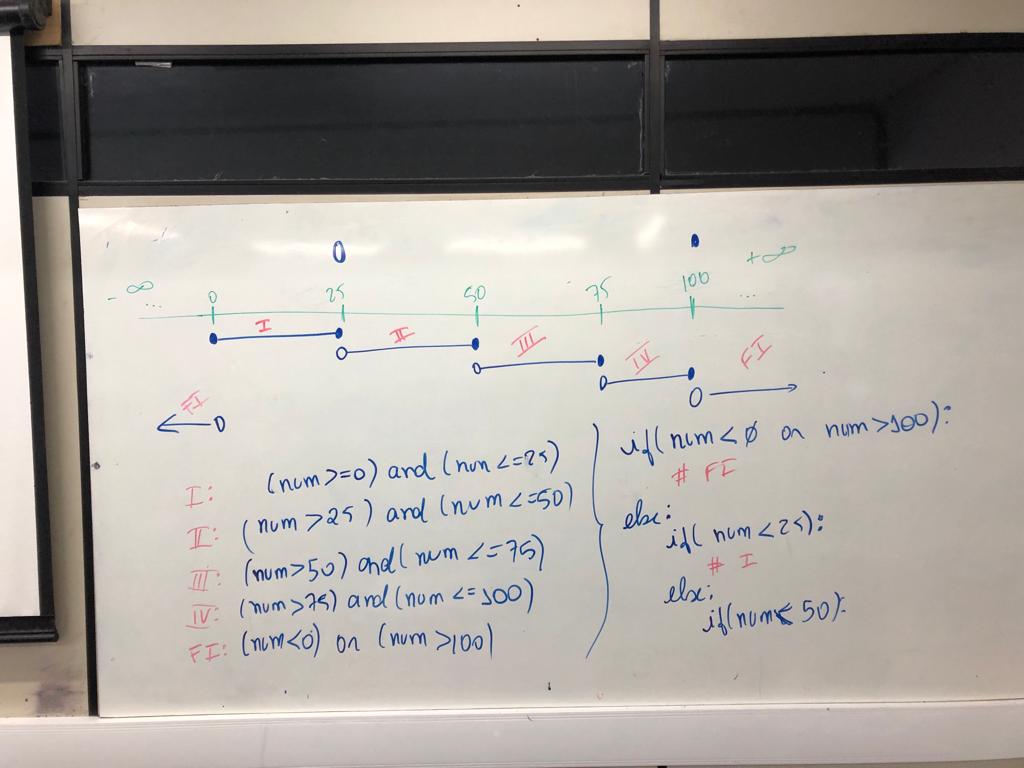 - ∞ ... 0 25 50 75 100 ... + ∞
I II III IV FI
FI
I: (num >= 0) and (num <= 25)
II: (num > 25) and (num <= 50)
III: (num > 50) and (num <= 75)
IV: (num > 75) and (num <= 100)
FI: (num < 0) or (num > 100)
if (num < 0 or num > 100):
# FI
else:
if (num < 25):
# I
else:
if (num < 50):